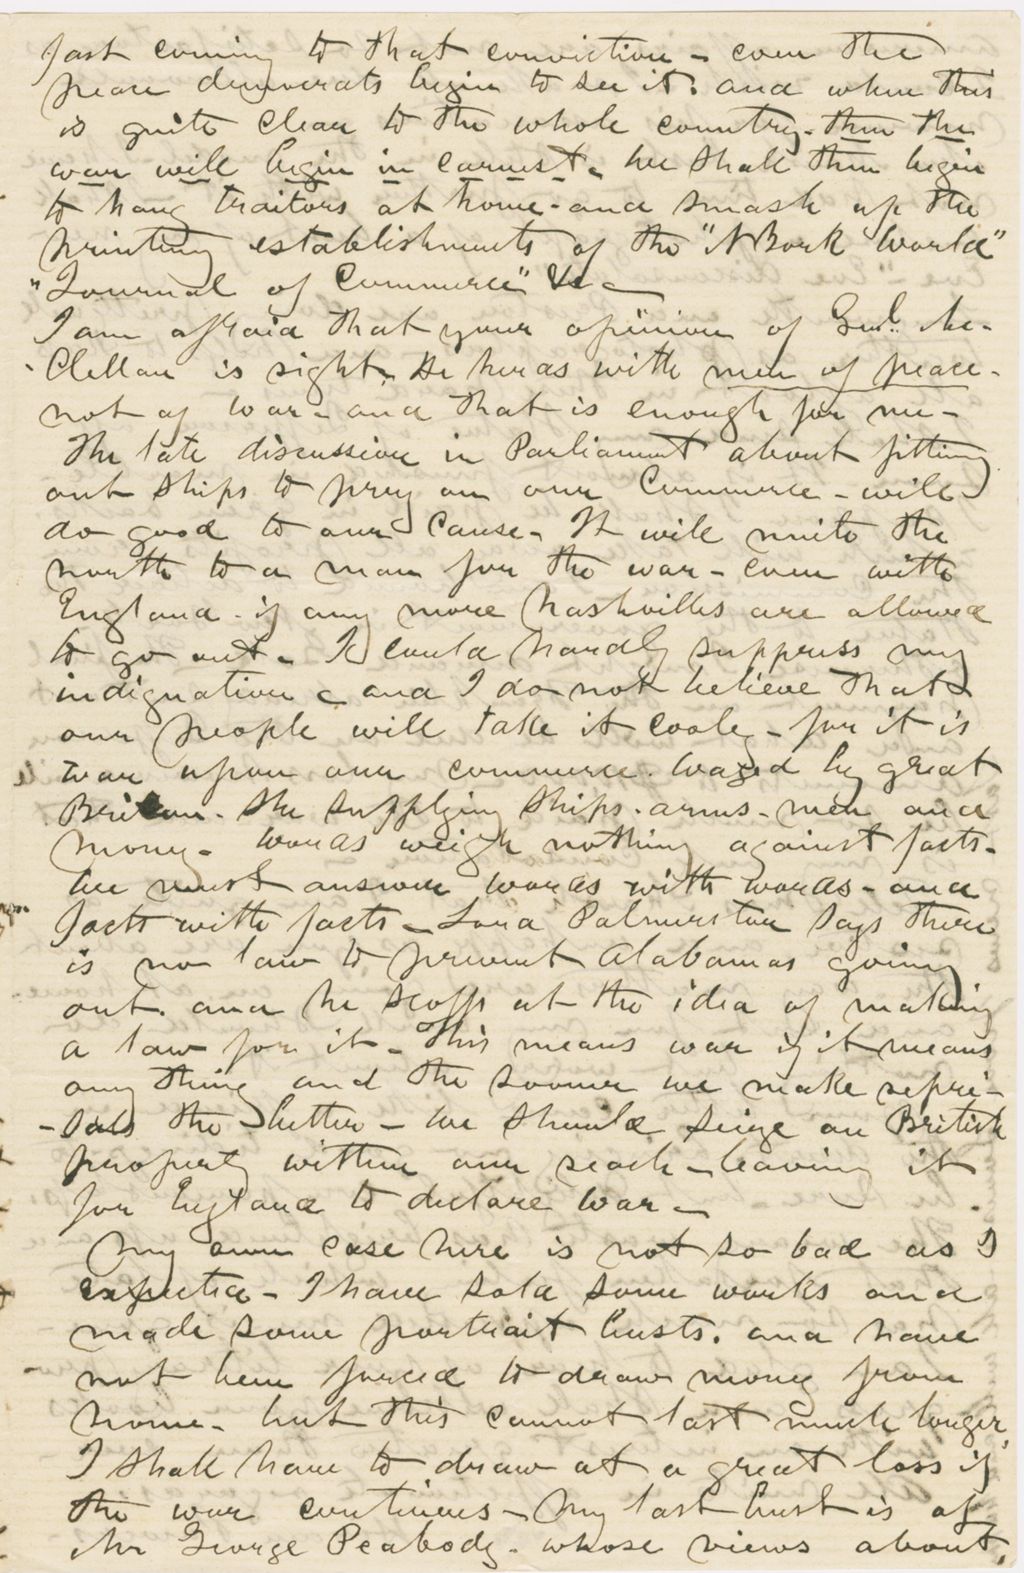 fast coming to that conviction - even the
peace democrats begin to see it. and when this
is quite clear to the whole country - then the
war will begin in earnest. We shall then begin
to hang traitors at home - and smash up the
printing establishments of the "N York World"
"Journal of Commerce" &c -
I am afraid that your opinion of Genl. Mc-
-Clellan is right. He herds with men of peace -
not of war - and that is enough for me -
The late discussion in Parliament about fitting
out ships to prey on our Commerce - will
do good to our cause - It will unite the
north to a man for the war - even with
England - if any more Nashvilles are allowed
to go out - I could hardly suppress my
indignation - and I do not believe that
our people will take it cooly - for it is
war upon our commerce. waged by great
Britain - she supplying ships - arms - men and
money - words weigh nothing against facts -
We must answer words with words - and
facts with facts - Lord Palmerston says there
is no law to prevent Alabamas going
out. and he scoffs at the idea of making
a law for it - This means war if it means
any thing and the sooner we make repri-
-sals the better - We should seize on British
property within our reach - leaving it
for England to declare war -
My own case here is not so bad as I
expected - I have sold some works and
made some portrait busts. and have
not been forced to draw money from
home - but this cannot last much longer,
I shall have to draw at a great loss if
the war continues - My last bust is of
Mr George Peabody - whose views about,